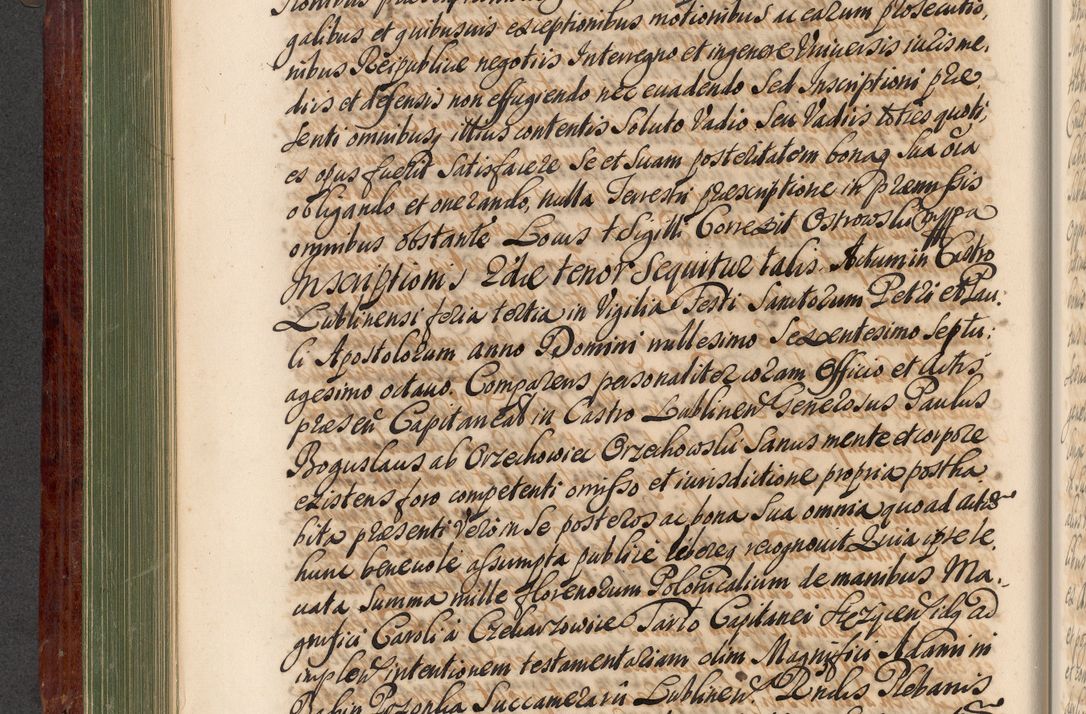 galibus et quibusvis exceptionibus motionibus ac earum prosecutis,
nibus Reipublicae negotiis Interregno et ingenere Universis iuris me,
diis et defensis non effugiendo nec evadendo Sed Inscriptioni prae
senti omnibusq illius contentis Soluto Vadio Seu Vadiis toties quoti,
es opus fuerit Satisfacere Se et Suam posteritatem bonaq Sua oia
obligando et onerando, nulla Terrestri praescriptione in praemissis
omnibus obstante Locus + Sigilli Correxit Ostrowski mppa
Inscriptionis 2dae tenor Sequitur talis. Actum in Castro
Lublinensi feria tertia in Vigilia Festi Sanctorum Petri et Pau:
li Apostolorum anno Domini millesimo Sexentesimo Septu,
agesimo octavo. Comparens personaliter coram Officio et Actis
praesen Capitaneal in Castro Lublinen Generosus Paulus
Boguslaus ab Orzechowiec Orzechowski Sanus mente et corpore
existens foro competenti omisso et iurisdictione propria postha
bita praesenti vero in Se posteros ac bona Sua omnia quoad actum
hunc benevole assumpta publice libereq recognovit Quia ipse le,
vata Summa mille florenorum Polonicalium de manibus Ma,
gnifici Caroli à Czekarzowice Tarlo Capitanei
implen intentionem testamentariam olim Magnifici Adami in
Succamerarii Lublinen Plebanis